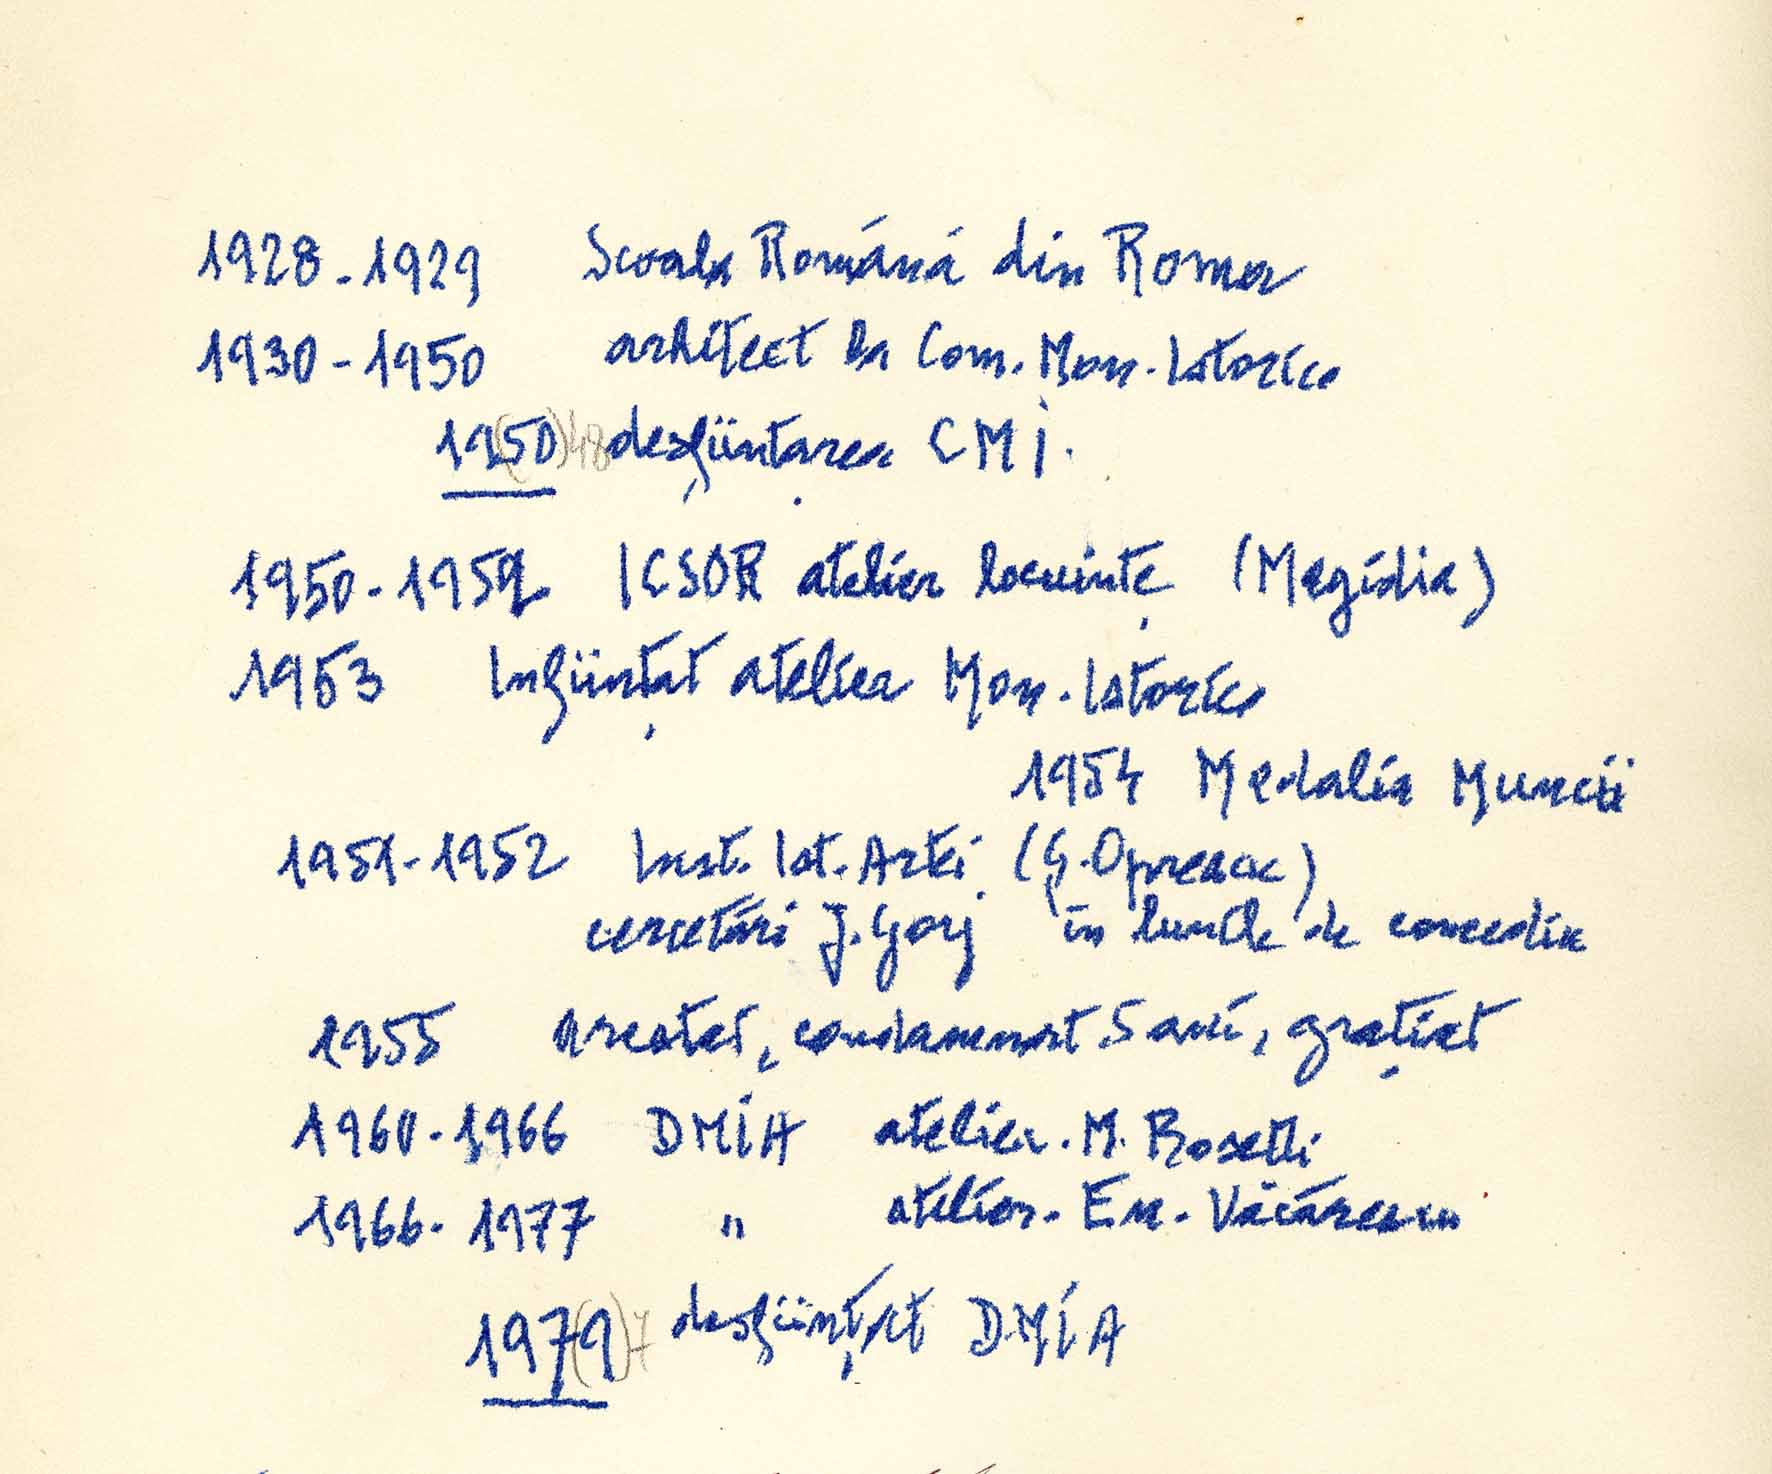 1928-1929 Scoala Română din Roma
1930-1950 arhitect la Com. Mon. Istorice
19(50)48 desființarea CMI.
1950-1952 ICSOR atelier locuințe (Megidia)
1953 Inființat atelier Mon. Istorice
1954 Medalia Muncii
1951-1952 Inst. Ist. Artei (G. Oprescu)
cercetări J. Gorj în lunile de concediu
1955 Arestat, condamnat 5 ani, grațiat
1960-1966 DMIA atelier. M. Rosetti
1966-1977 " atelier. Em. Văcărescu
197(9)7 desființat DMIA